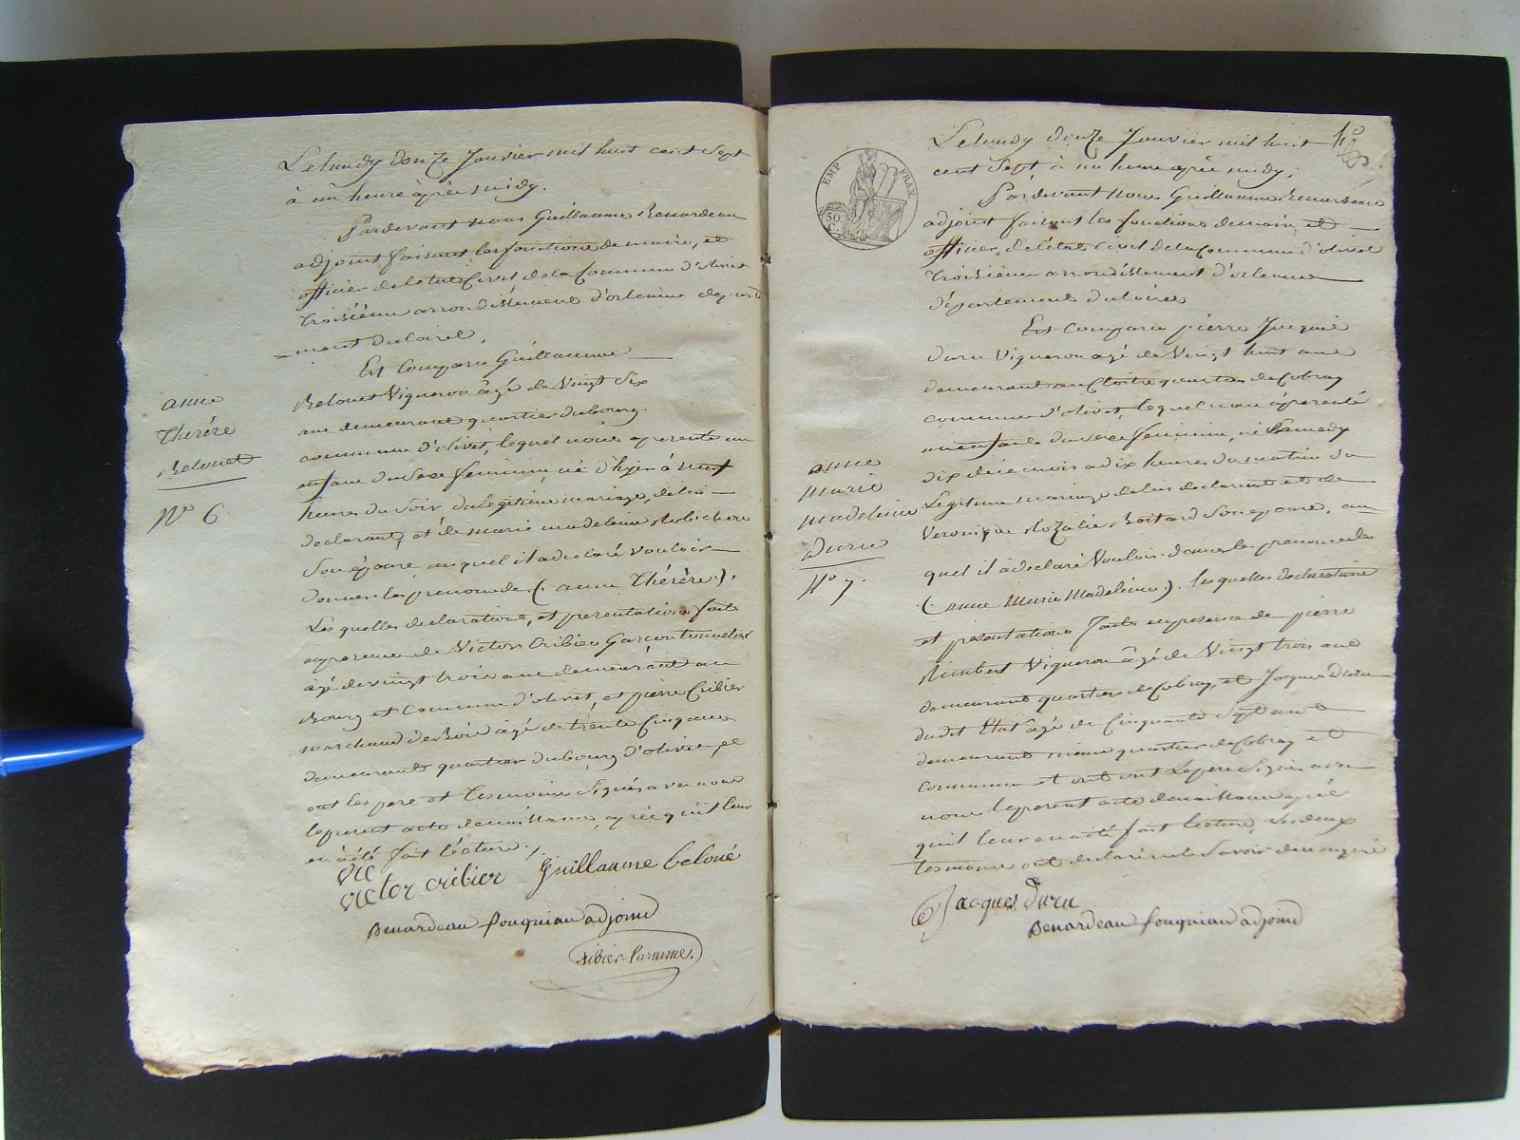 Le lundy douze Janvier mil huit cent Sept
à un heure après midy.
Pardevant nous Guillaume Benardeau
adjoint faisant les fonctions de maire, et
officier de l'état Civil de la Commune d'olivet
troisième arrondissement d'orleans départ
=ment du loiret,
Est Comparu Guillaume
Belouet Vigneron âgé de Vingt Six
ans demeurant quartier du bourg
commune d'olivet, lequel nous a presenté un
enfant du Sexe feminin, né d'hyer à neuf
heures du Soir, du legitime mariage, de lui
declarant, et de marie madeleine Robichon
Son épouse auquel il a déclaré vouloir
donner les prenoms de (anne Thérèse).
Les quelles declarations, et presentation fait
en presence de Victor Cribier Garçon tonnelier
âgé de vingt trois ans demeurant au
Bourg et Commune d'olivet, et pierre Cribier
marchand de Bois âgé de trente Cinq ans
demeurant quartier du bourg d'olivet
ont les pere et temoins Signés avec nous
le present acte de naissance, après qu'il leur
en a été fait lecture.
anne
Thérèse
Belouet
N° 6
Vic
victor cribier Guillaume beloué
Benardeau fouqniau adjoind
Le lundy douze Janvier mil huit
cent Sept à un heure après midy,
Pardevant nous Guillaume Benardeau
adjoint faisant les fonctions de maire, et
officier, de l'état Civil de la Commune d'olivet
troisième arrondissement d'orleans
département du loiret
Est Comparu pierre Jacques
Duru Vigneron agé de Vingt huit ans
demeurant au Cloitre quartier de Cobray
commune d'olivet, lequel nous a presenté
un enfant du Sexe feminin, né Samedy
dix de ce mois a dix heures du matin du
Legitime mariage de lui declarant et de
Veronique Rozalie Boitard Son epouse, au
quel il a declaré Vouloir donner les prenoms de
(anne Marie Madeleine). les quelles declarations
et presentations faites en presence de pierre
Rimbert Vigneron âgé de Vingt trois ans
demeurant quartier de Cobray, et Jaques Duru
dudit Etat âgé de Cinquante Sept ans
demeurant même quartier de Cobray et
commune et ont Le pere Signé avec
nous le present acte de naissance après
qu'il leur en a été fait lecture, Les deux
temoins ont declaré ne le Savoir de ce enquis
anne
Marie
Madeleine
Duru
N° 7.
Jacques Duru
Benardeau fouqniau adjoind
EMP. FRAN.
50
C.